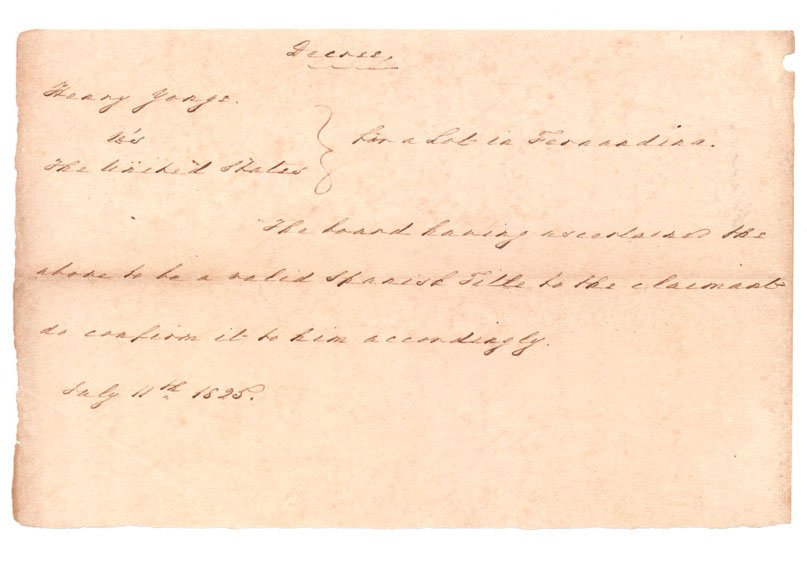 Decree,
Henry Yonge.
vs
The United States
For a Lot in Fernandina.
The board having ascertained the
above to be a valid Spanish Title to the claimant
do confirm it to him accordingly.
July 11th 1825.